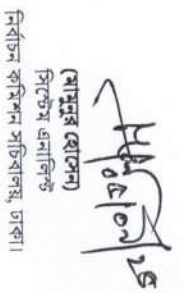 (মামুনুর হোসেন)
সিস্টেম এনালিস্ট
নির্বাচন কমিশন সচিবালয়, ঢাকা।